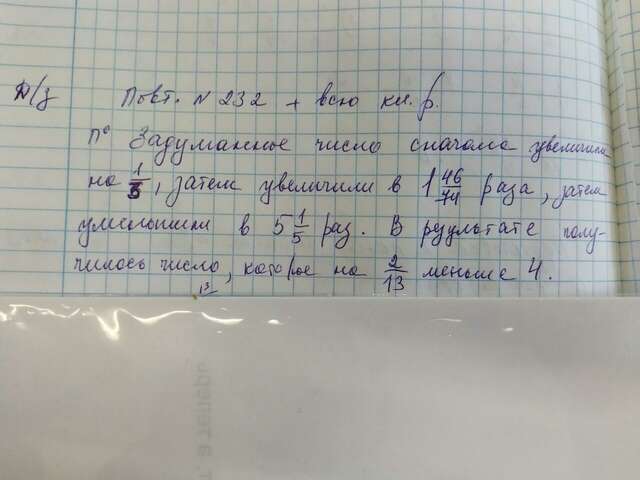 Д/з Повт. №232 + всю кл. р.
п° Задуманное число сначала увеличили
на 1/3, затем увеличили в 1 46/74 раза, затем
уменьшили в 5 1/5 раз. В результате полу-
чилось число, которое на 2/13 меньше 4.
13